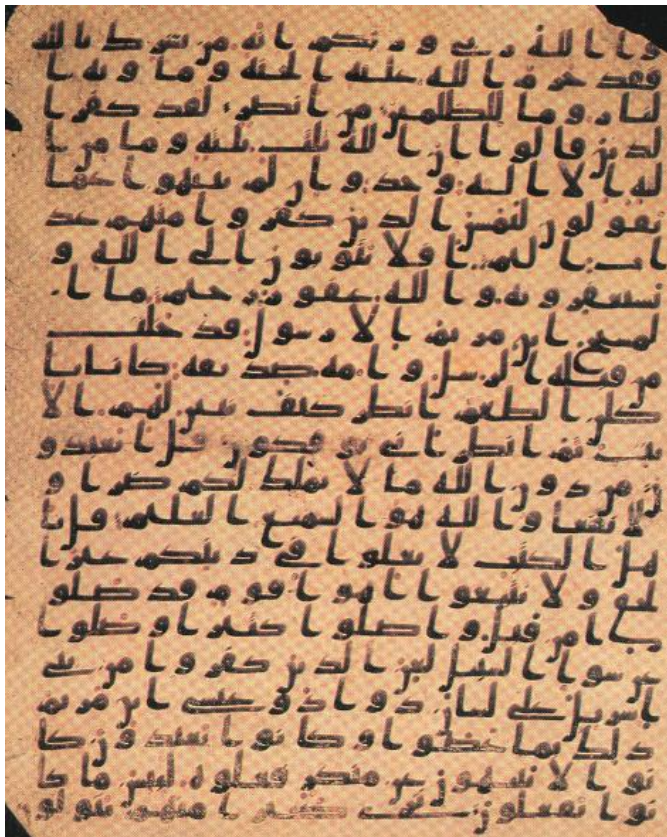 وا الله ربى وربكم انه من يشرك بالله
فقد حرم الله عليه الجنة وماويه ا
لنار وما للظلمين من انصر لقد كفر ا
لذين قالوا ان الله ثلث ثلثة وما من ا
له الا اله وحد وان لم ينتهوا عما
يقولون ليمسن الذين كفروا منهم عذ
اب اليم افلا يتوبون الى الله و
يستغفرونه والله غفور رحيم ما ا
لمسيح ابن مريم الا رسول قد خلت
من قبله الرسل وامه صديقه كانا يا
كلن الطعم انظر كيف نبين لهم الا
يت ثم انظر انى يوفكون قل اتعبدو
ن من دون الله ما لا يملك لكم ضرا و
لا نفعا والله هو السميع العليم قل يا
هل الكتب لا تغلوا فى دينكم غير ا
لحق ولا تتبعوا اهوا قوم قد ضلو
ا من قبل واضلوا كثيرا وضلوا
عن سوا السبيل لعن الذين كفروا من بنى
اسريل على لسان داود وعيسى ابن مريم
ذلك بما عصوا وكانوا يعتدون كا
نوا لا يتنهون عن منكر فعلوه لبيس ما كا
نوا يفعلون ترى كثيرا منهم يتولو